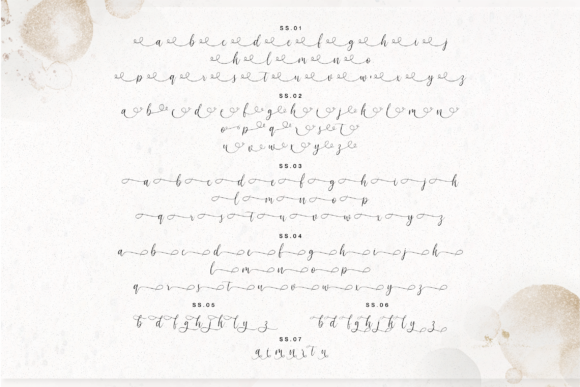 SS.01
a b c d e f g h i j
k l m n o
p q r s t u v w x y z
SS.02
a b c d e f g h i j k l m n
o p q r s t
u v w x y z
SS.03
a b c d e f g h i j k
l m n o p
q r s t u v w x y z
SS.04
a b c d e f g h i j k
l m n o p
q r s t u v w x y z
SS.05
b d f g h j k l y z
SS.06
b d f g h j k l y z
SS.07
a i m n r t u